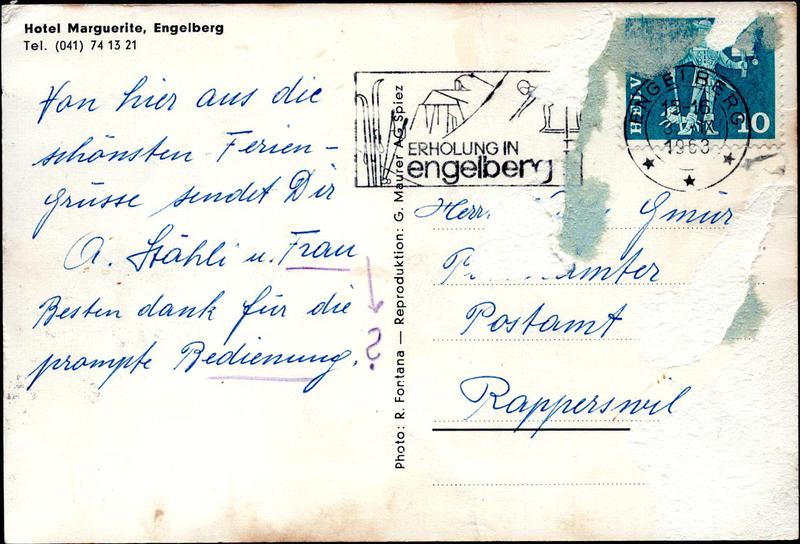 Hotel Marguerite, Engelberg
Tel. (041) 74 13 21
Von hier aus die
schönsten Ferien-
grüsse sendet Dir
A. Stähli u. Frau
Besten dank für die
prompte Bedienung.
?
Photo: R. Fontana — Reproduktion: G. Maurer AG Spiez
ERHOLUNG IN
engelberg
HELV
10
ENGELBERG
15-16
IX
1963
Herr Gmür
Postamt
Rapperswil